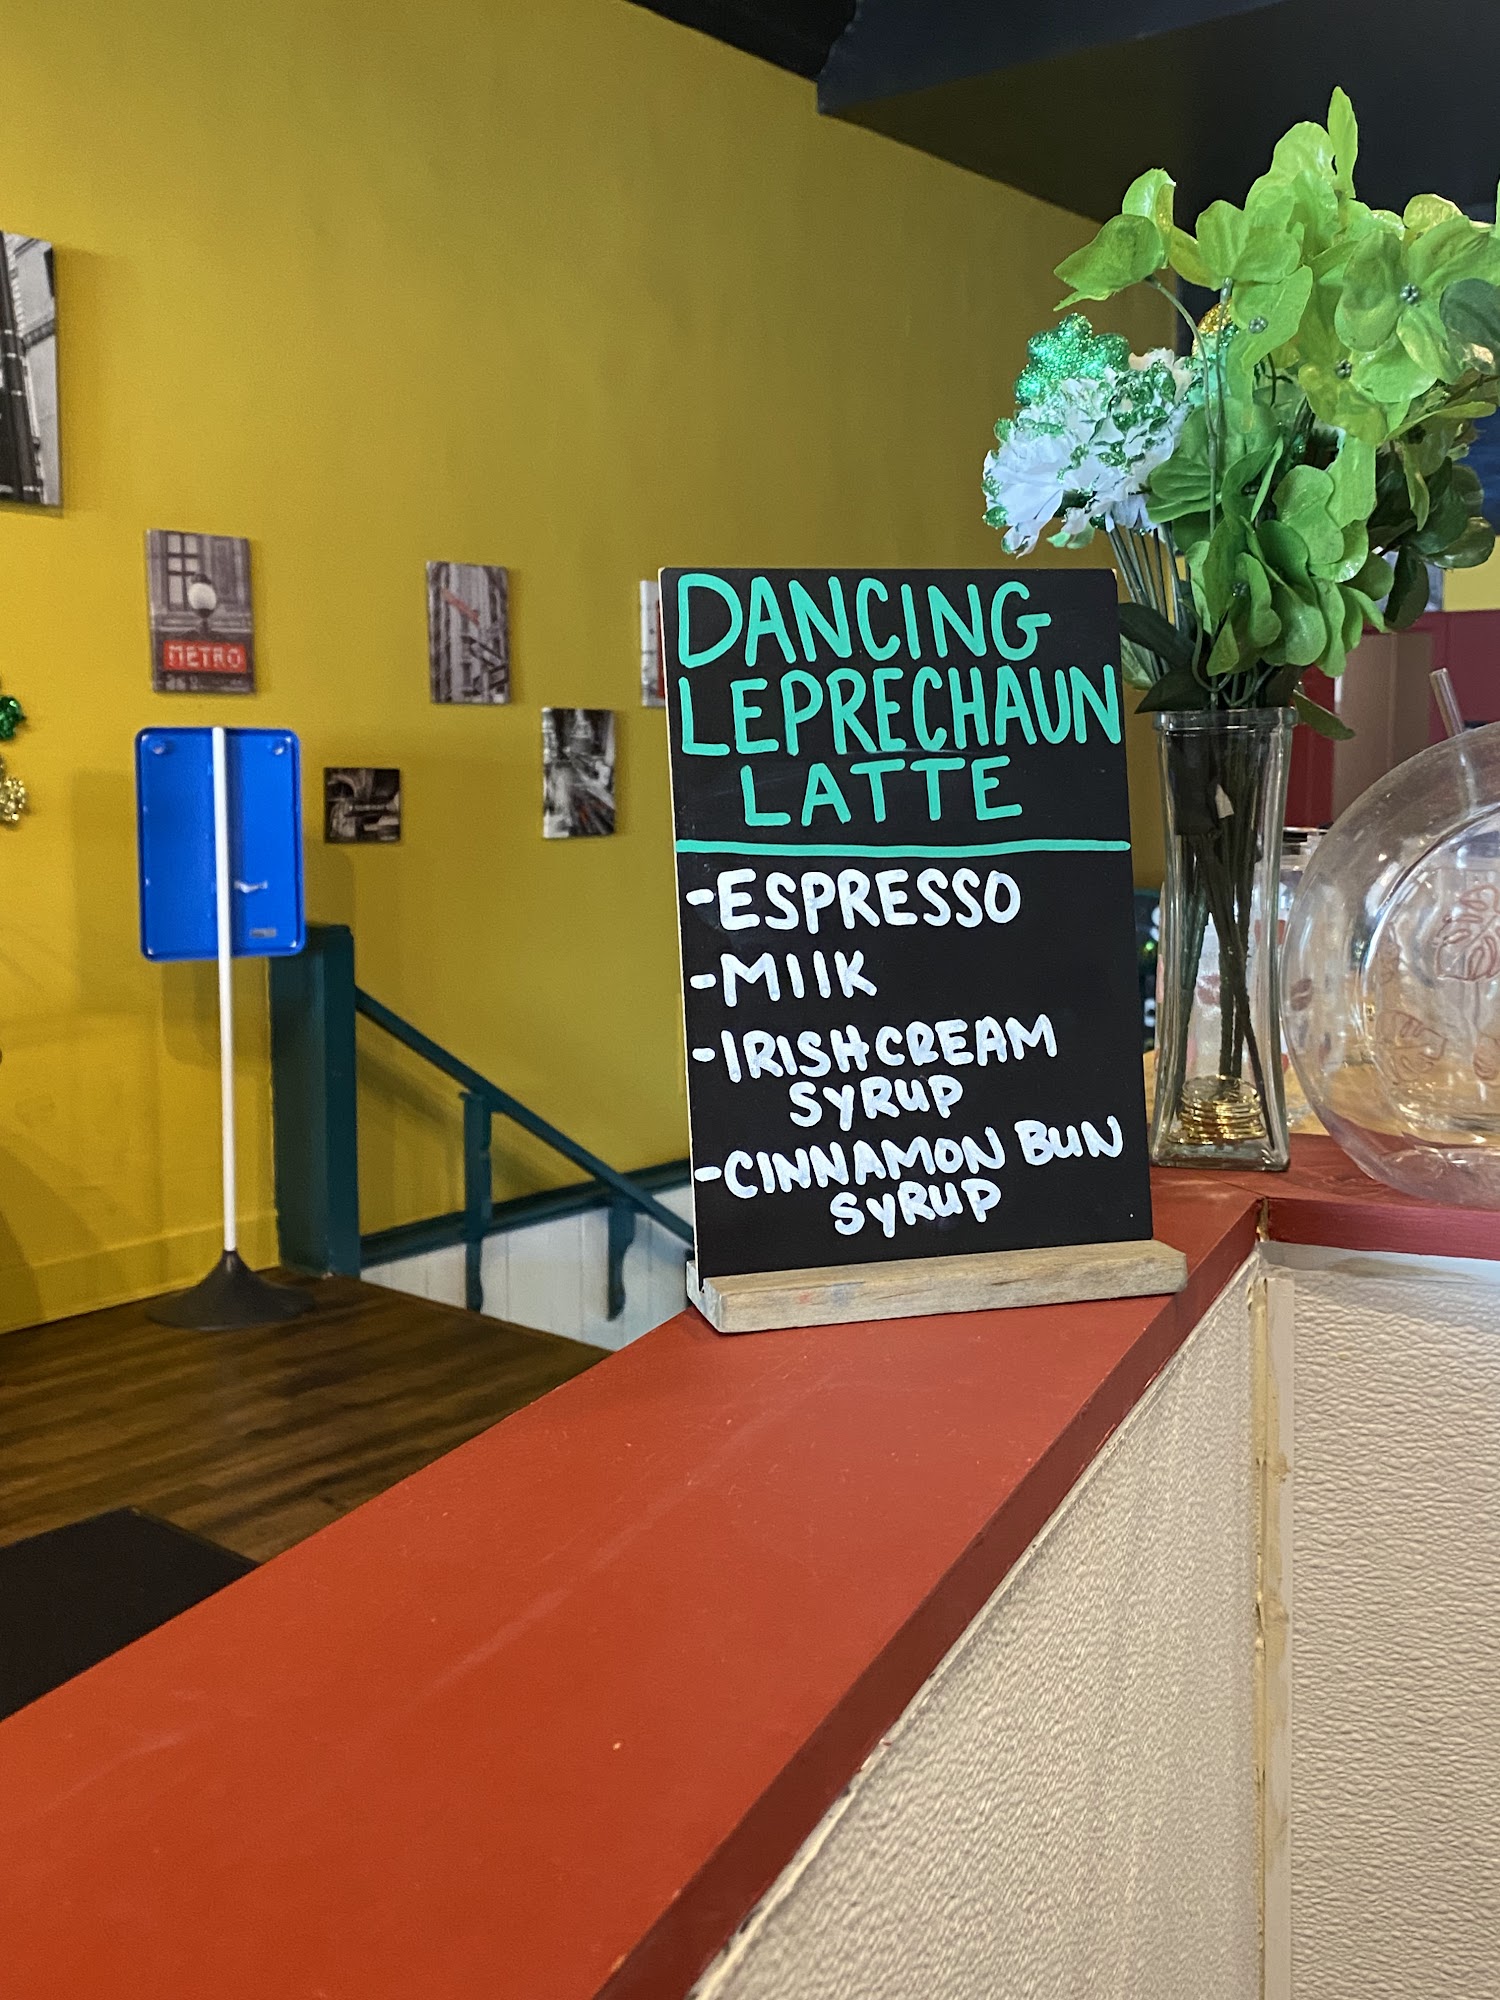 METRO
DANCING
LEPRECHAUN
LATTE
-ESPRESSO
-MIlK
-IRISH CREAM
SYRUP
-CINNAMON BUN
SYRUP